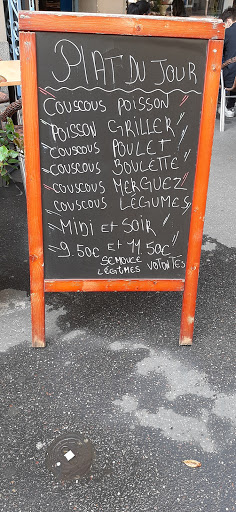 PLAT DU JOUR
COUSCOUS POISSON
POISSON GRILLER
COUSCOUS POULET
COUSCOUS BOULETTE
COUSCOUS MERGUEZ
COUSCOUS LÉGUMES
MIDI ET SOIR
9.50€ ET 11.50€
SEMOULE
LÉGUMES VOLONTÉS